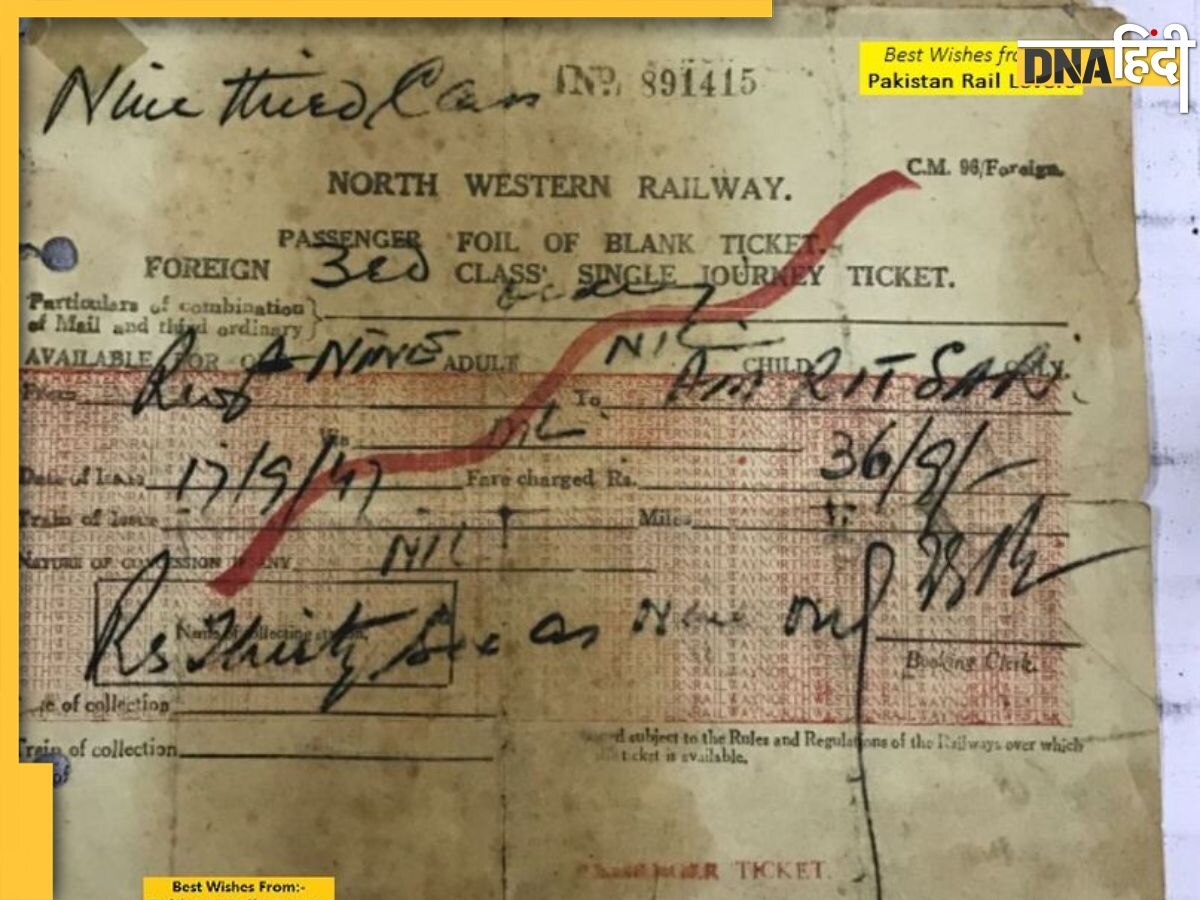 Best Wishes fro
DNA हिंदी
Pakistan Rail Lovers
Nine third Class No. 891415
C.M. 96/Foreign.
NORTH WESTERN RAILWAY.
PASSENGER FOIL OF BLANK TICKET.
FOREIGN 3rd CLASS SINGLE JOURNEY TICKET.
Particulars of combination
of Mail and third ordinary}
AVAILABLE FOR NINE ADULT NIL CHILD ONLY.
From To AMRITSAR
Via
Date of Issue 17/9/47 Fare charged Rs. 36/9/-
Train of Issue Miles
NATURE OF CONCESSION IF ANY NIL
Rs Thirty Six as Nine only
Name of collecting station.
Booking Clerk.
of collection
Train of collection
subject to the Rules and Regulations of the Railways over which
ticket is available.
PASSENGER TICKET.
Best Wishes From:-